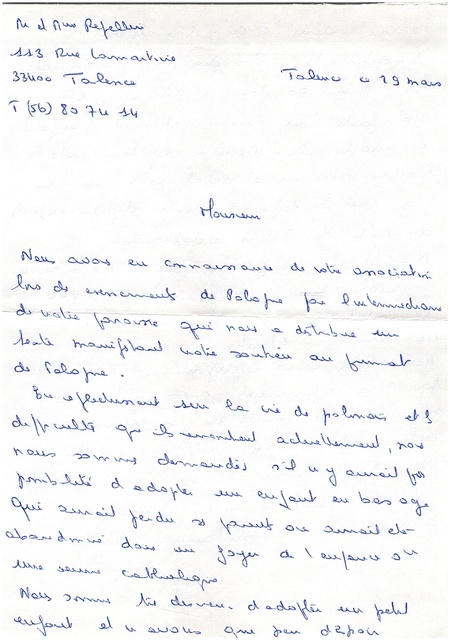 M et Mme Repellin
113 Rue Lamartine
33400 Talence
Talence ce 29 mars
T (56) 80 74 14
Monsieur
Nous avons eu connaissance de votre association
lors de evenements de Pologne par l'intermediaire
de votre paroisse qui nous a distribue un
texte manifestant votre soutien au
de Pologne.
En reflechissant sur la vie de polonais et
difficulté qu ils rencontrent actuellement, nous
nous sommes demandés s'il n y aurait pas
possibilité d adopter un enfant en bas age
qui aurait perdu se parents ou aurait ete
abandonné dans un foyer de l enfance ou
une oeuvre catholique.
Nous sommes tres desireux d adopter un petit
enfant et n avons que peu d espoir